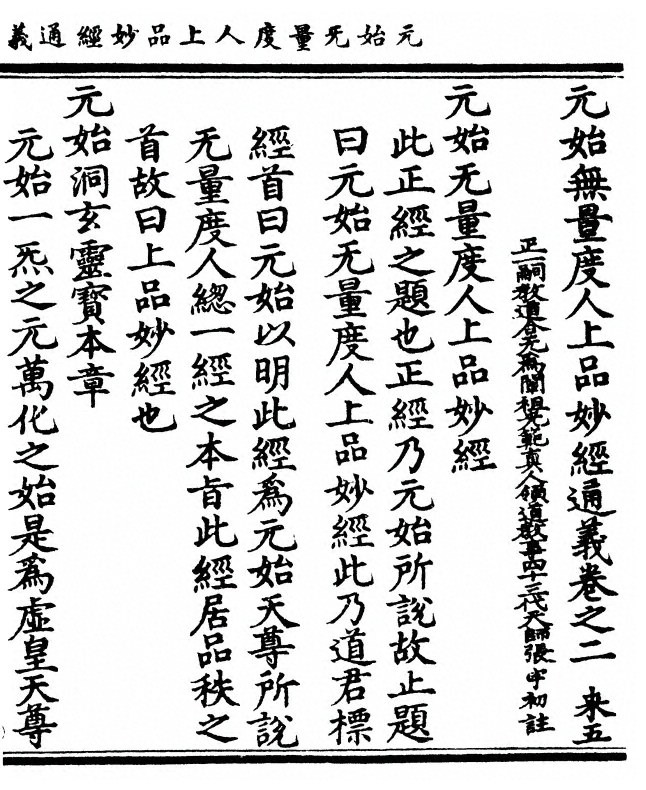 元始无量度人上品妙經通義
元始無量度人上品妙經通義卷之二 来五
正一嗣教道合无為闡祖光範真人領道教事四十三代天師張宇初註
元始无量度人上品妙經
此正經之題也正經乃元始所説故止題
曰元始无量度人上品妙經此乃道君標
經首曰元始以明此經為元始天尊所説
无量度人緫一經之本旨此經居品秩之
首故曰上品妙經也
元始洞玄靈寶本章
元始一炁之元萬化之始是為虛皇天尊